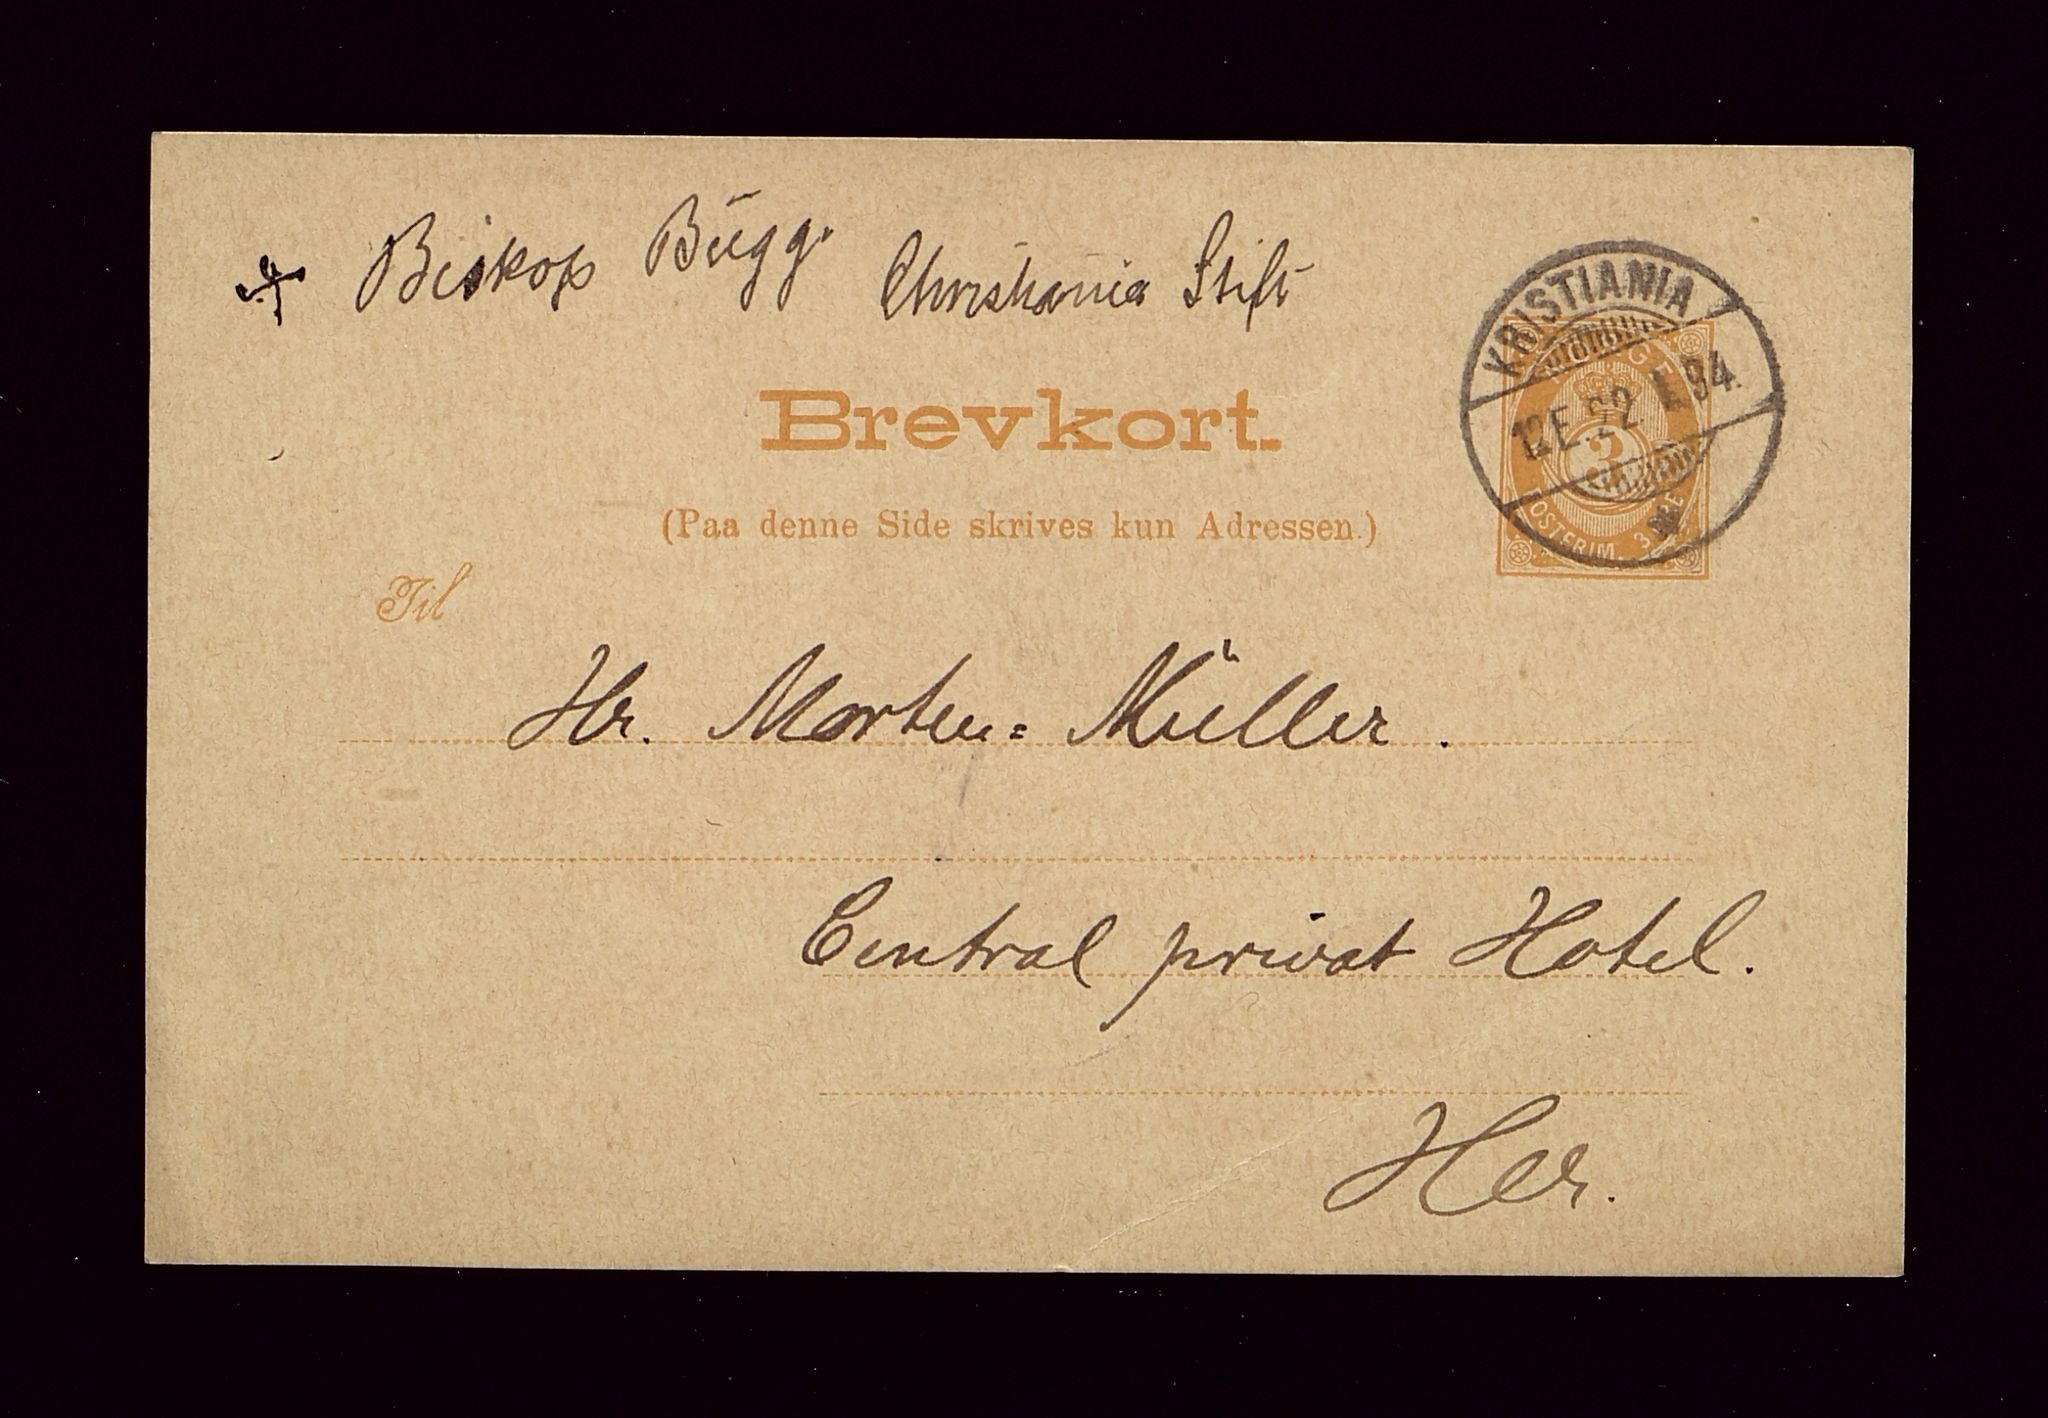 Biskop Bugge Christiania Stift
KRISTIANIA
12 E. 22 94
NORGE
3
POSTFRIM. 3 ØRE
Brevkort.
(Paa denne Side skrives kun Adressen.)
Til
Hr. Morten=Müller.
Central privat Hotel.
Her.